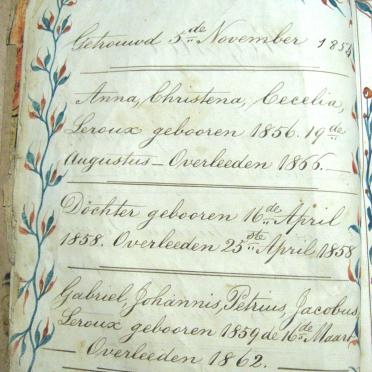 Getrouwd 5de November 1854
Anna, Christena, Cecelia,
Leroux gebooren 1856. 19de
Augustus – Overleeden 1866.
Dochter gebooren 16de April
1858. Overleeden 25ste April 1858
Gabriel, Johannis, Petrius, Jacobus,
Leroux gebooren 1859 de 16de Maart
Overleeden 1862. –